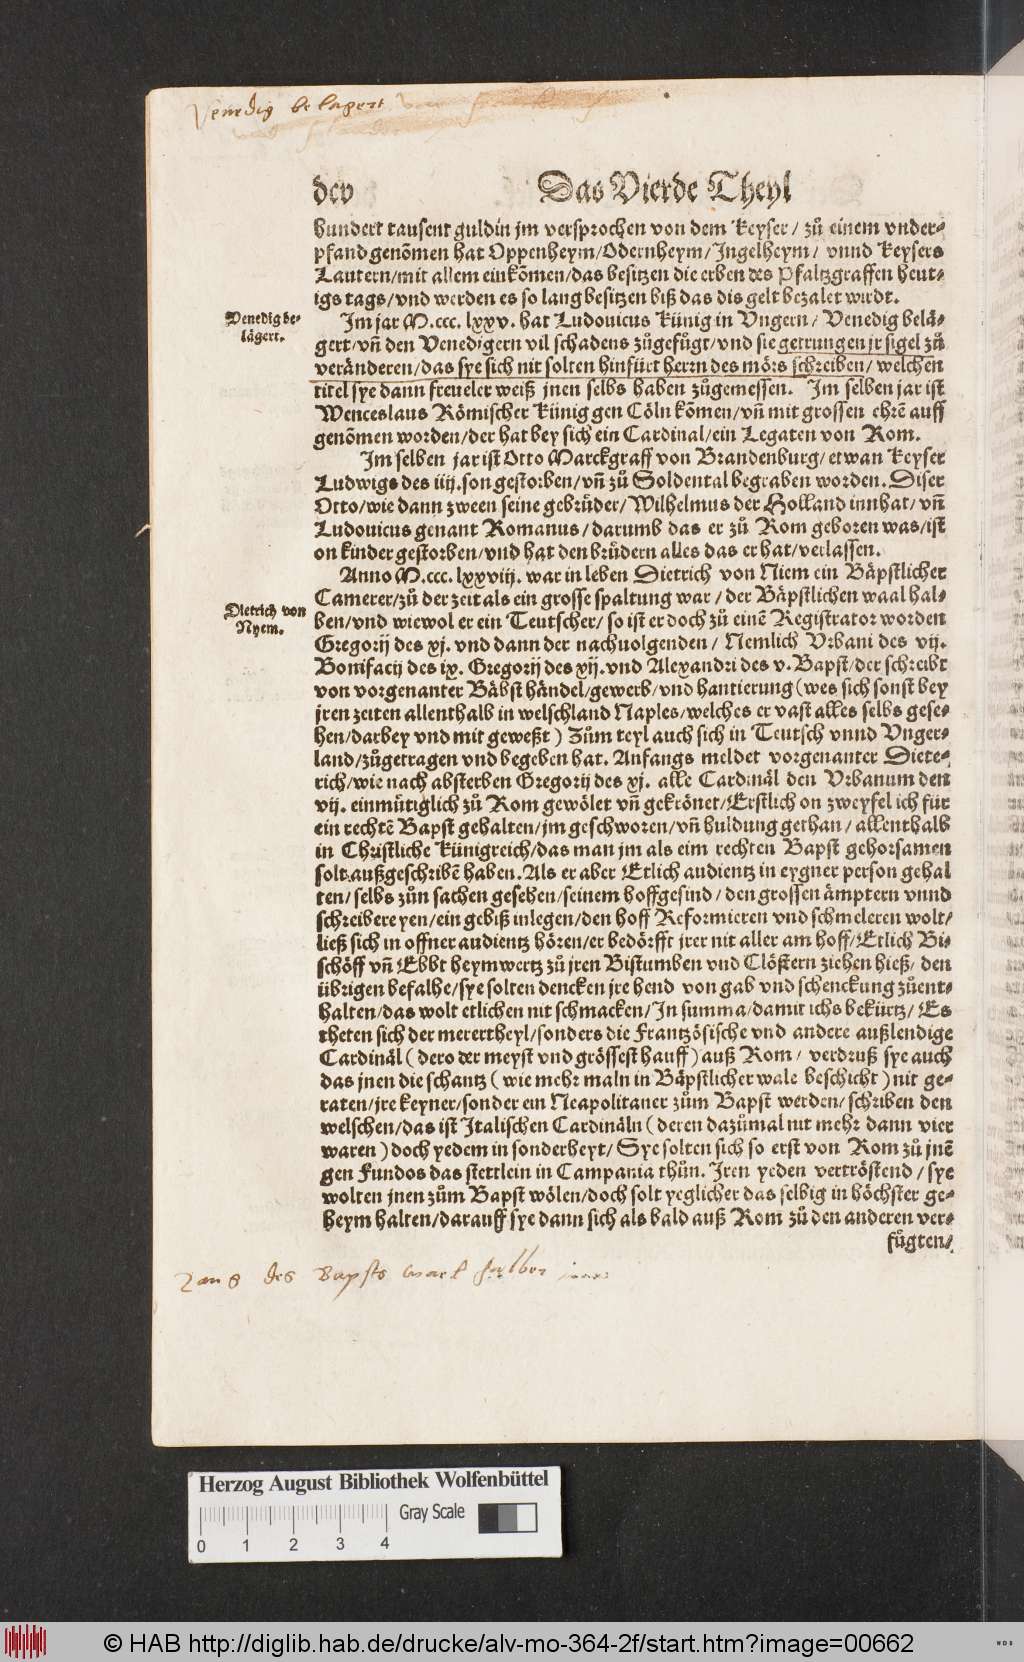 Venedig belagert
dcv
Das Vierde Theyl
hundert tausent guldin jm versprochen von dem Keyser / zů einem vnder-
pfand genõmen hat Oppenheym/Odernheym/Ingelheym / vnnd Keysers
Lautern/mit allem einkõmen/das besitzen die erben des Pfaltzgraffen heut-
igs tags/vnd werden es so lang besitzen biß das dis gelt bezalet wirdt.
Venedig be-
lägert.
Im jar M.ccc. lxxv. hat Ludouicus Künig in Vngern / Venedig belä-
gert/vñ den Venedigern vil schadens zůgefügt/vnd sie getrungen jr sigel zů
veränderen/das sye sich nit solten hinfürt herrn des mörs schreiben/ welchen
titel sye dann freueler weiß jnen selbs haben zůgemessen. Im selben jar ist
Wenceslaus Römischer Künig gen Cöln kõmen/vñ mit grossen ehrẽ auff
genõmen worden/der hat bey sich ein Cardinal/ein Legaten von Rom.
Im selben jar ist Otto Marckgraff von Brandenburg/etwan Keyser
Ludwigs des iiij.son gestorben/vñ zů Soldental begraben worden. Diser
Otto/wie dann zween seine gebrüder/Wilhelmus der Holland innhat/vñ
Ludouicus genant Romanus/darumb das er zů Rom geboren was/ist
on kinder gestorben/vnd hat den brüdern alles das er hat/verlassen.
Anno M.ccc. lxxviij. war in leben Dietrich von Niem ein Bäpstlicher
Camerer/zů der zeit als ein grosse spaltung war / der Bäpstlichen waal hal-
Dietrich von
Nyem.
ben/vnd wiewol er ein Teutscher/so ist er doch zů einẽ Registrator worden
Gregorij des xj. vnd dann der nachuolgenden / Nemlich Vrbani des vij.
Bonifacij des ix. Gregorij des xij. vnd Alexandri des v. Bapst/der schreibt
von vorgenanter Bäbst händel/gewerb/vnd hantierung (wes sich sonst bey
jren zeiten allenthalb in welschland Naples/welches er vast alles selbs gese-
hen/darbey vnd mit geweßt) Zům teyl auch sich in Teutsch vnnd Vnger-
land/zůgetragen vnd begeben hat. Anfangs meldet vorgenanter Diete-
rich/wie nach absterben Gregorij des xj. alle Cardinäl den Vrbanum den
vij. einmütiglich zů Rom gewölet vñ gekrönet/Erstlich on zweyfel ich für
ein rechtẽ Bapst gehalten/jm geschworen/vñ huldung gethan / allenthalb
in Christliche Künigreich/das man jm als eim rechten Bapst gehorsamen
solt.außgeschribẽ haben. Als er aber Etlich audientz in eygner person gehal
ten/selbs zůn sachen gesehen/seinem hoffgesind / den grossen ämptern vnnd
schreibereyen/ein gebiß inlegen/den hoff Reformieren vnd schmeleren wolt/
ließ sich in offner audientz hören/er bedörfft jrer nit aller am hoff/Etlich Bi-
schöff vñ Ebbt heymwertz zů jren Bistumben vnd Clöstern ziehen hieß/ den
übrigen befalhe/sye solten dencken jre hend von gab vnd schenckung zůent-
halten/das wolt etlichen nit schmacken/In summa/damit ichs bekürtz/ Es
theten sich der merertheyl/sonders die Frantzösische vnd andere außlendige
Cardinäl (dero der meyst vnd grössest hauff) auß Rom / verdruß sye auch
das jnen die schantz (wie mehr maln in Bäpstlicher wale beschicht) nit ge-
raten/jre keyner/sonder ein Neapolitaner zům Bapst werden/ schriben den
welschen/das ist Italischen Cardinäln (deren dazůmal nit mehr dann vier
waren) doch yedem in sonderheyt/ Sye solten sich so erst von Rom zů jnẽ
gen Fundos das stettlein in Campania thůn. Iren yeden vertröstend / sye
wolten jnen zům Bapst wölen/doch solt yeglicher das selbig in höchster ge-
heym halten/darauff sye dann sich als bald auß Rom zů den anderen ver-
fůgten/
des Bapsts halber
Herzog August Bibliothek Wolfenbüttel
Gray Scale
0 1 2 3 4
© HAB http://diglib.hab.de/drucke/alv-mo-364-2f/start.htm?image=00662